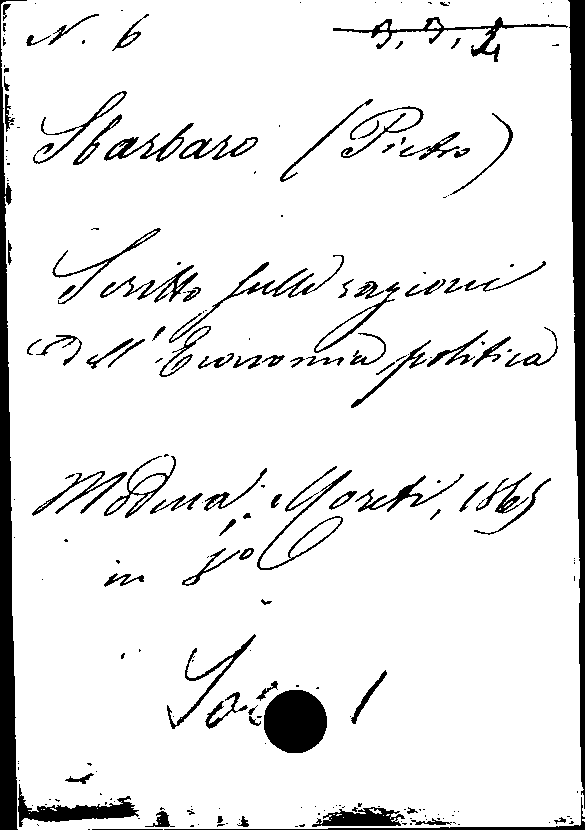 N. 6 3, 3, 2
Sbarbaro (Pietro)
Scritto sulle ragioni
dell' Economia politica
Modena, Moreti, 1865
in 8°
1